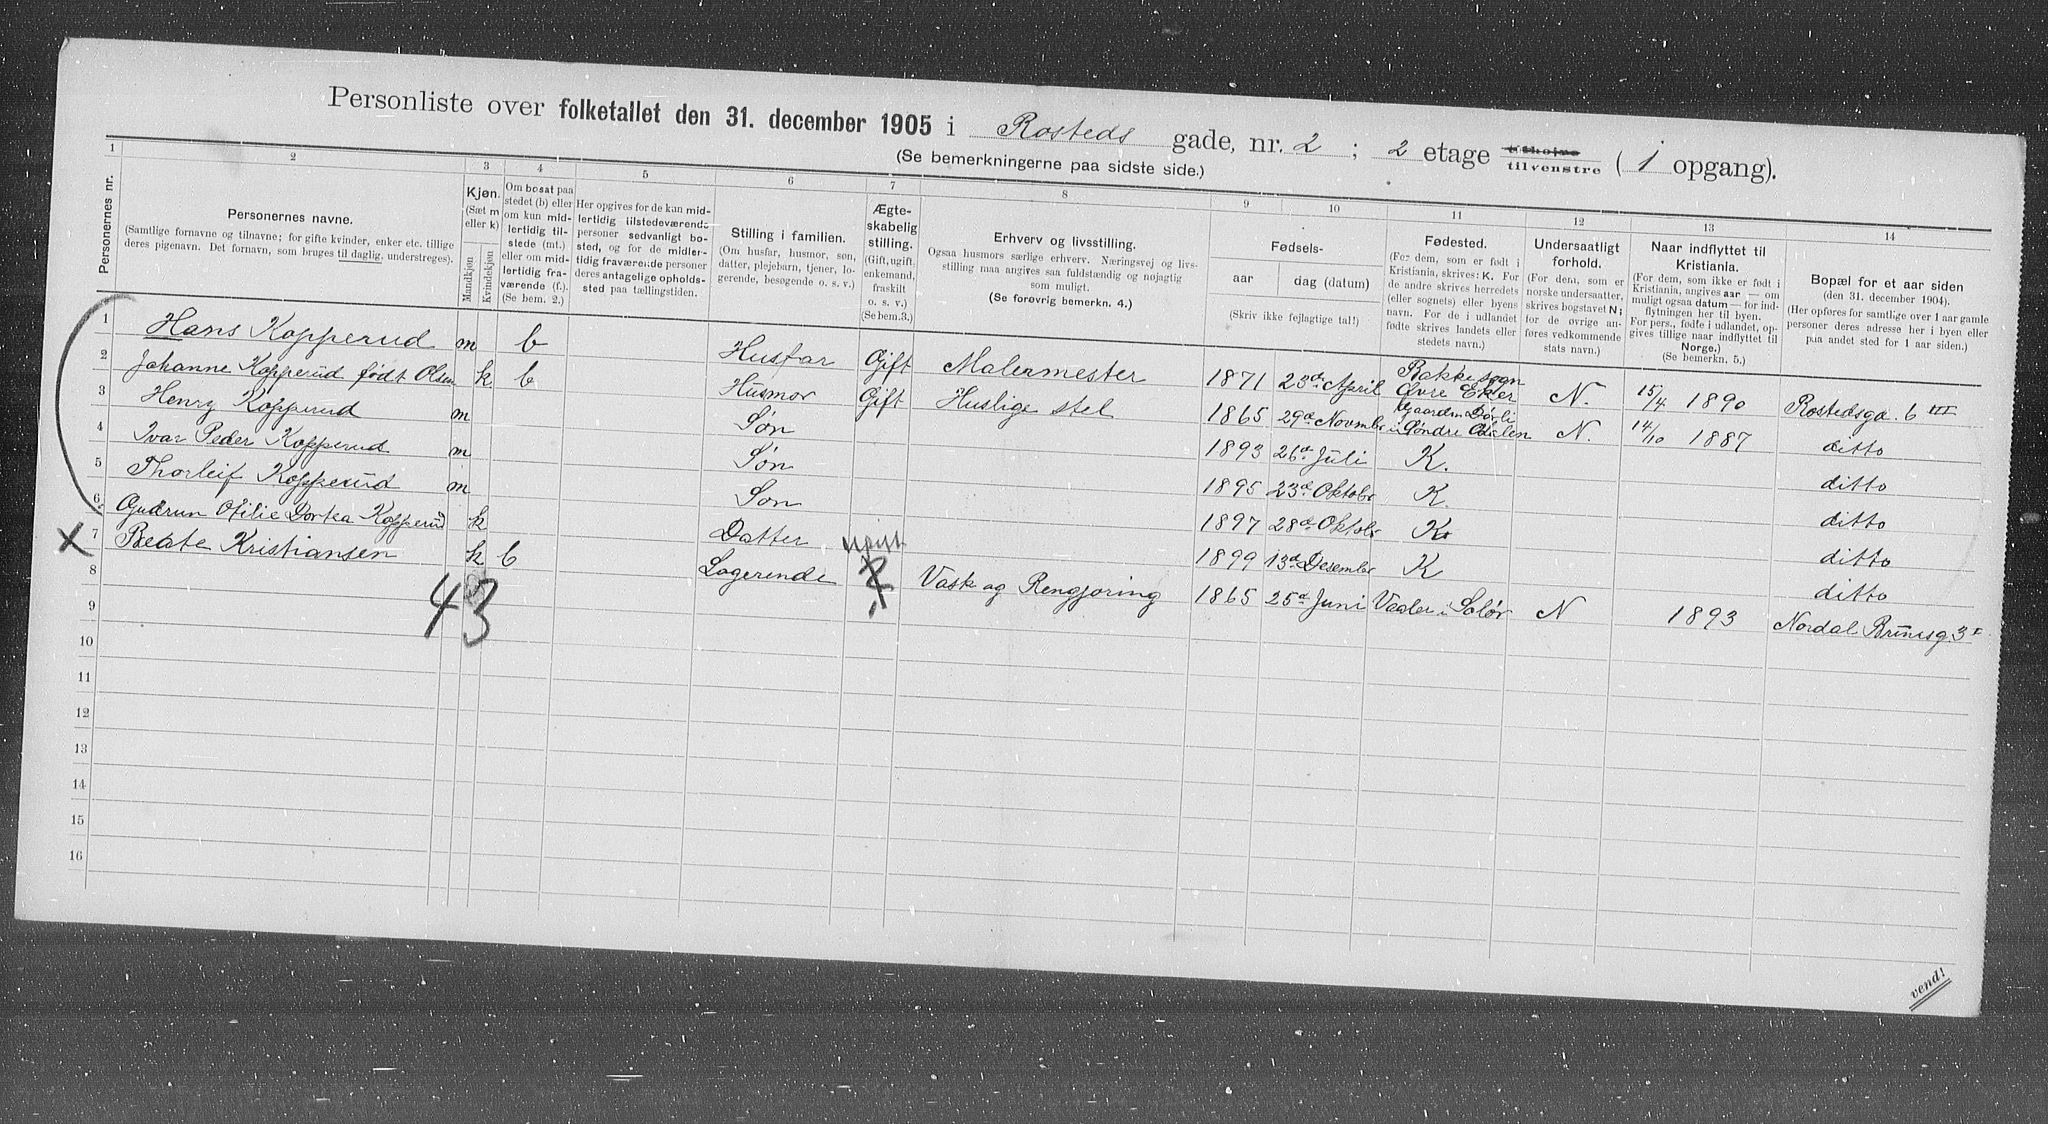 Personliste over folketallet den 31. december 1905 i Rosteds gade, nr. 2 ; 2 etage tilhøire / tilvenstre ( 1 opgang).
(Se bemerkningerne paa sidste side.)
1 2 3 4 5 6 7 8 9 10 11 12 13 14
Personernes nr.
Personernes navne.
(Samtlige fornavne og tilnavne; for gifte kvinder, enker etc. tillige
deres pigenavn. Det fornavn, som bruges til daglig, understreges).
Kjøn.
(Sæt m
eller k)
Mandkjøn
Kvindekjøn
Om bosat paa
stedet (b) eller
om kun mid-
lertidig til-
stede (mt.)
eller om mid-
lertidig fra-
værende (f.).
(Se bem. 2.)
Her opgives for de kun mid-
lertidig tilstedeværende
personer sedvanligt bo-
sted, og for de midler-
tidig fraværende personer
deres antagelige opholds-
sted paa tællingstiden.
Stilling i familien.
(Om husfar, husmor, søn,
datter, plejebarn, tjener, lo-
gerende, besøgende o. s. v.)
Ægte-
skabelig
stilling.
(Gift, ugift.
enkemand,
fraskilt
o. s. v.)
(Se bem.3.)
Erhverv og livsstilling.
Ogsaa husmors særlige erhverv. Næringsvej og livs-
stilling maa angives saa fuldstændig og nøjagtig
som muligt.
(Se forøvrig bemerkn. 4.)
Fødsels-
aar
dag (datum)
(Skriv ikke fejlagtige tal!)
Fødested.
(For dem, som er født i
Kristiania, skrives: K. For
de andre skrives herredets
(eller sognets) eller byens
navn. For de i udlandet
fødte skrives landets eller
stedets navn.)
Undersaatligt
forhold.
(For dem, som er
norske undersaatter,
skrives bogstavet N;
for de øvrige an-
føres vedkommende
stats navn.)
Naar indflyttet til
Kristiania.
(For dem, som ikke er født i
Kristiania, angives aar — om
muligt ogsaa datum — for ind-
flytningen her til byen.
For pers., fødte i udlandet, op-
gives tillige naar indflyttet til
Norge.)
(Se bemerkn. 5.)
Bopæl for et aar siden
(den 31. december 1904).
(Her opføres for samtlige over 1 aar gamle
personer deres adresse her i byen eller
paa andet sted for 1 aar siden.)
1 Hans Kopperud m b Husfar Gift Malermester 1871 23de April Bakke sogn Øvre Eker N. 15/4 1890 Rostedsgd. 6 III
2 Johanne Kopperud født Olsen k b Husmor Gift Huslige stel 1865 29de Novmbr Gaarden Dørli i Søndre Odalen N. 14/10 1887 ditto
3 Henry Kopperud m Søn 1893 26de Juli K. ditto
4 Ivar Peder Kopperud m Søn 1895 23de Oktobr K. ditto
5 Thorleif Kopperud m Søn 1897 28de Oktobr K. ditto
6 Gudrun Otilie Dortea Kopperud k Datter 1899 13de Desembr K ditto
X 7 Beate Kristiansen k b Logerende ugift ? Vask og Rengjøring 1865 25de Juni Vaaler i Solør N 1893 Nordal Brunsg. 3 I
8
43
9
10
11
12
13
14
15
16
vend!